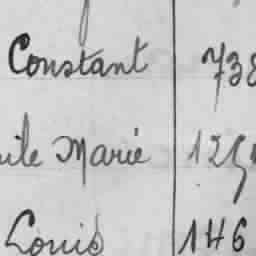 Constant 738
ile Marie 125
Louis 146